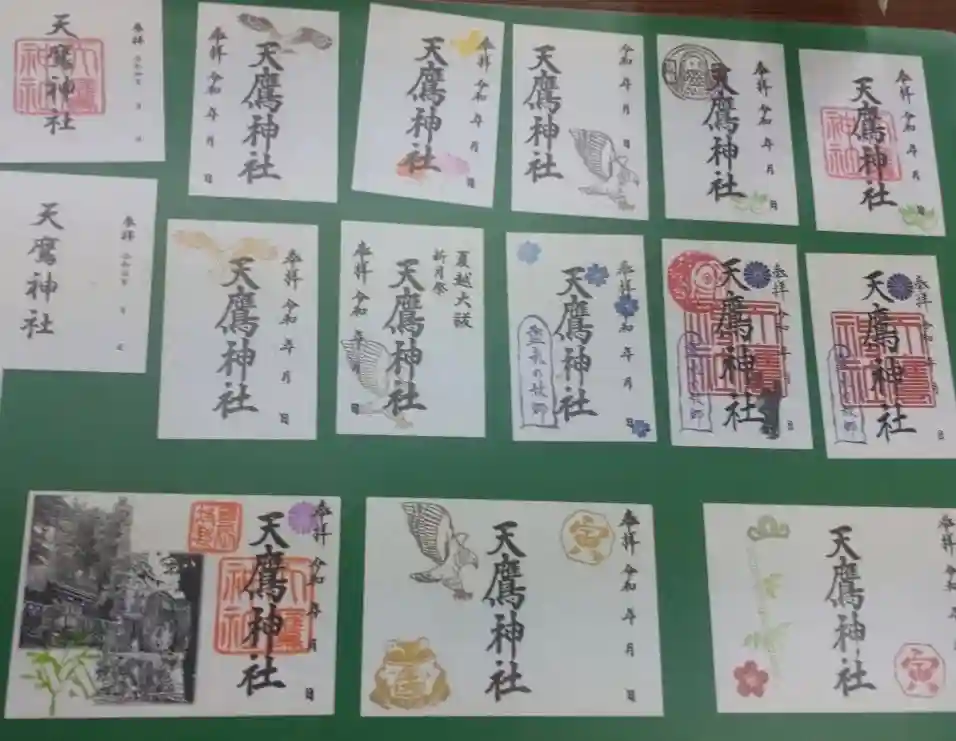 天鷹神社
参拝
天鷹神社
参拝 令和 年 月 日
天鷹神社
参拝 令和 年 月 日
天鷹神社
令和 年 月 日
天鷹神社
参拝 令和 年 月 日
天鷹神社
参拝 令和 年 月 日
天鷹神社
参拝
天鷹神社
参拝 令和 年 月 日
天鷹神社
夏越大祓
新月祭
天鷹神社
参拝 令和 年 日
参拝 令和 年 月 日
天鷹神社
の故郷
参拝 令和 年 日
天鷹神社
故郷
参拝 令和 年 日
天鷹神社
故郷
参拝 令和 年 月 日
天鷹神社
参拝 令和 年 月 日
寅
天鷹神社
参拝 令和 年 月 日
天鷹神社
寅